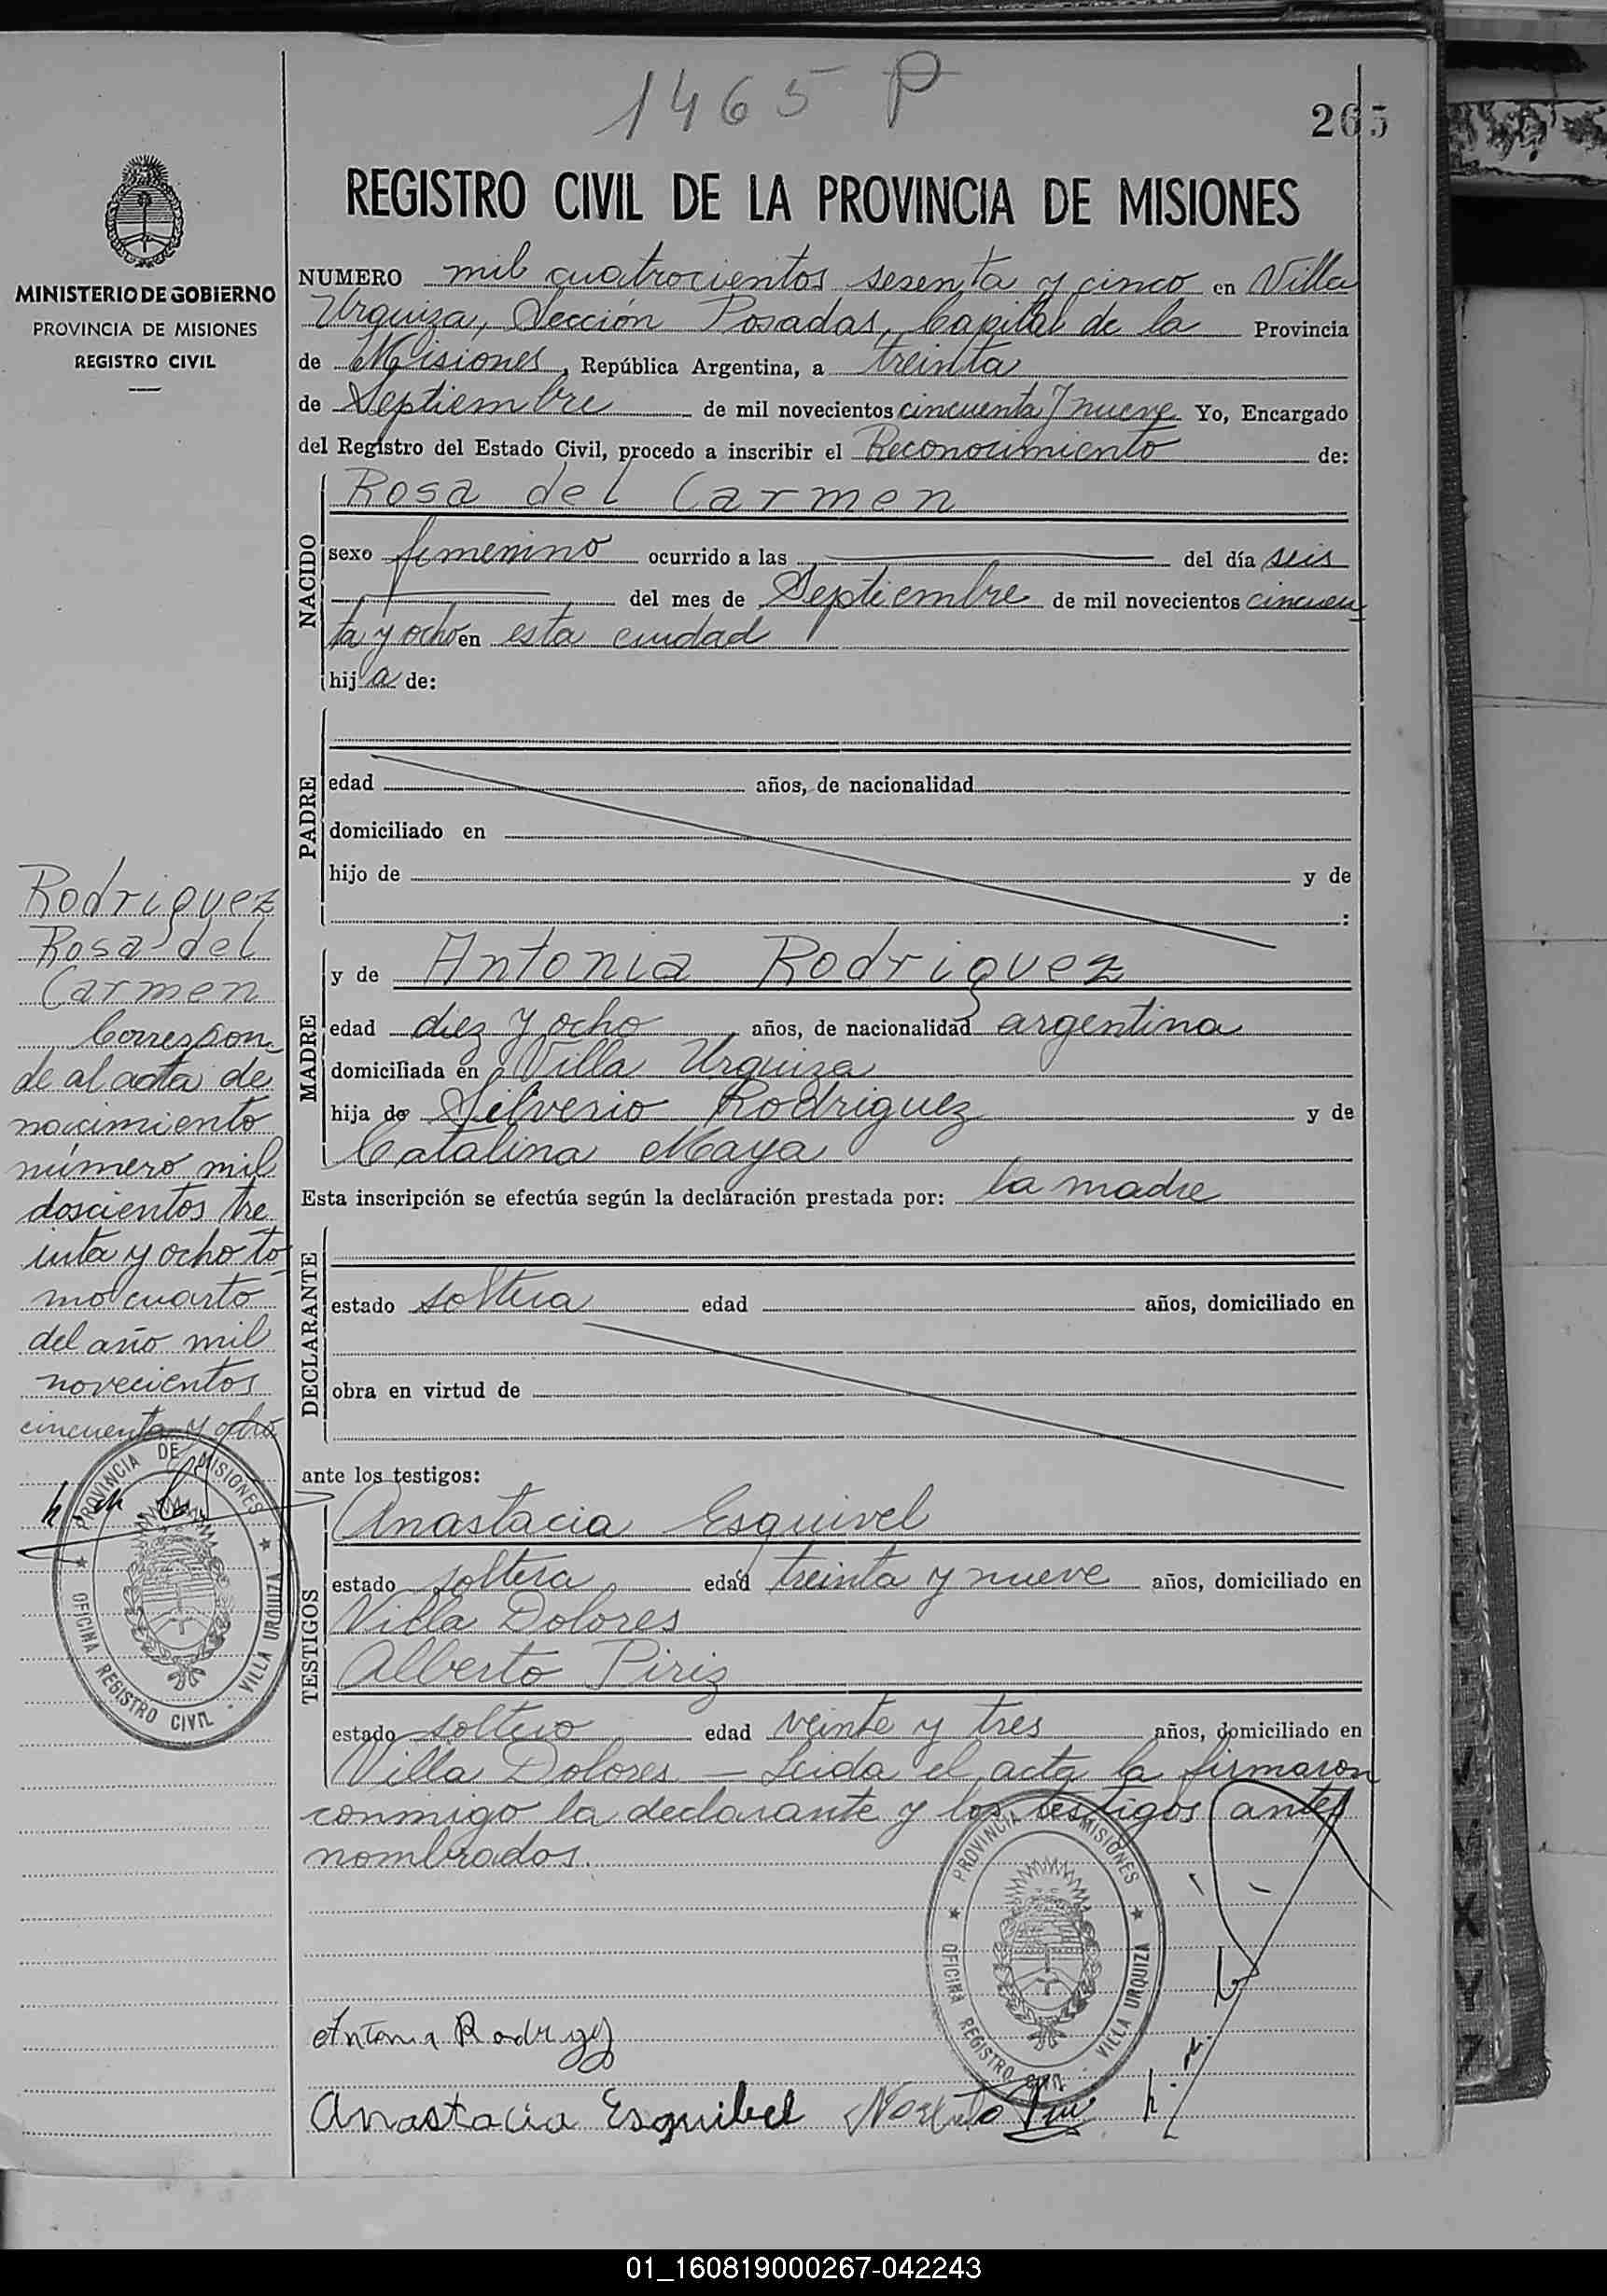 1465 P
265
MINISTERIO DE GOBIERNO
PROVINCIA DE MISIONES
REGISTRO CIVIL
REGISTRO CIVIL DE LA PROVINCIA DE MISIONES
NUMERO mil cuatrocientos sesenta y cinco en Villa
Urquiza, Sección Posadas, Capital de la Provincia
de Misiones, República Argentina, a treinta
de Septiembre de mil novecientos cincuenta y nueve Yo, Encargado
del Registro del Estado Civil, procedo a inscribir el Reconocimiento de:
NACIDO
Rosa del Carmen
sexo femenino ocurrido a las del día seis
del mes de Septiembre de mil novecientos cincuen
ta y ocho en esta ciudad
hija de:
PADRE
edad años, de nacionalidad
domiciliado en
hijo de y de
:
MADRE
y de Antonia Rodriguez
edad diez y ocho, años, de nacionalidad argentina
domiciliada en Villa Urquiza
hija de Silverio Rodriguez y de
Catalina Maya
Esta inscripción se efectúa según la declaración prestada por: la madre
DECLARANTE
estado soltera edad años, domiciliado en
obra en virtud de
ante los testigos:
TESTIGOS
Anastacia Esquivel
estado soltera edad treinta y nueve años, domiciliado en
Villa Dolores
Alberto Piriz
estado soltero edad veinte y tres años, domiciliado en
Villa Dolores — Leida el acta la firmaron
conmigo la declarante y los testigos antes
nombrados.
Antonia Rodrigez
Anastacia Esquibel
Rodriguez
Rosa del
Carmen
Correspon
de al acta de
nacimiento
número mil
doscientos tre
inta y ocho to
mo cuarto
del año mil
novecientos
cincuenta y ocho
PROVINCIA DE MISIONES
OFICINA REGISTRO CIVIL - VILLA URQUIZA
PROVINCIA DE MISIONES
OFICINA REGISTRO CIVIL - VILLA URQUIZA
X
Y
Z
01_160819000267-042243